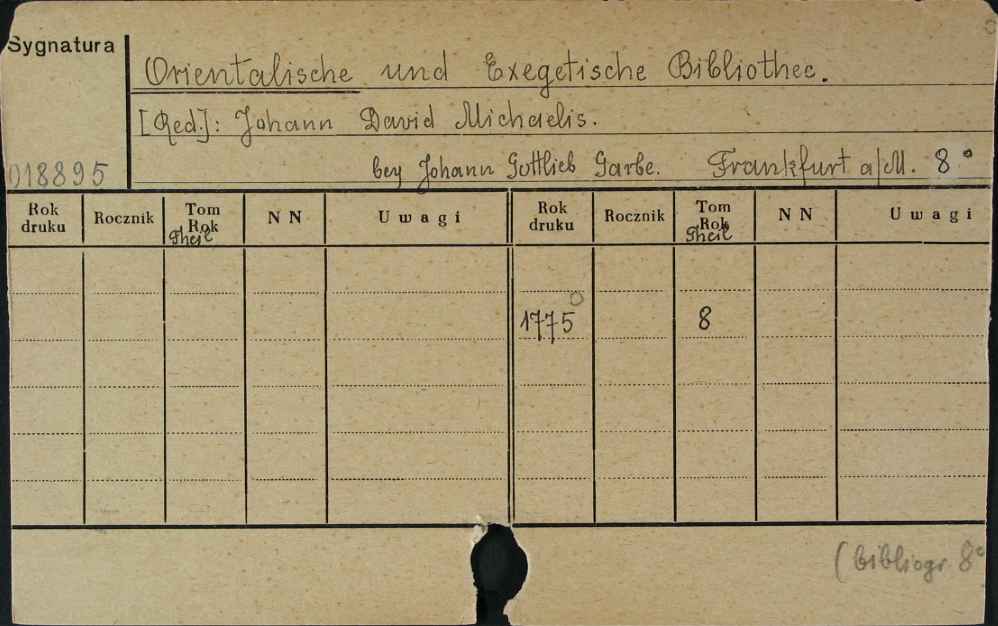 Sygnatura
Orientalische und Exegetische Bibliothec.
[Red.]: Johann David Michaelis.
018895
bey Johann Gottlieb Garbe. Frankfurt a/M. 8°
Rok druku Rocznik Tom Rok Theil NN Uwagi Rok druku Rocznik Tom Rok Theil NN Uwagi
1775 8
(bibliogr. 8°